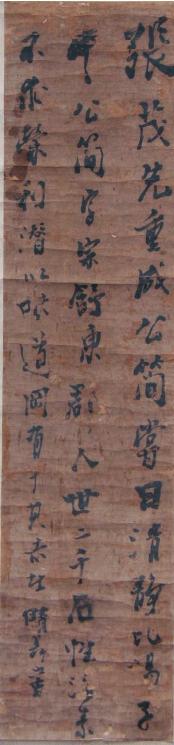 張茂先重成公簡嘗曰清靜比揚子
公簡字宗舒東郡人世二千石性淡素
不求榮利潛心味道罔有干其志者